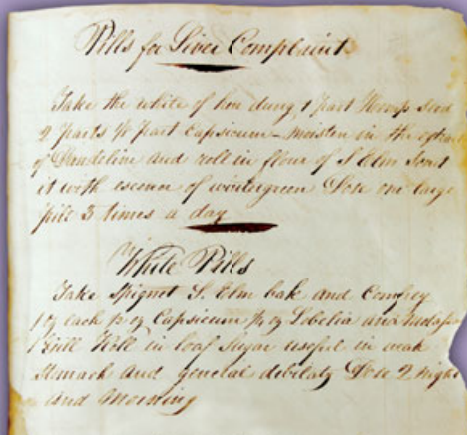 Pills for Liver Complaint
Take the white of hen dung 1 part Hemp seed
2 parts ½ part Capsicum - moisten in the
of Dandelion and roll in flour of S Elm Scent
it with essence of wintergreen Dose one large
pill 3 times a day
White Pills
Take Spignet S. Elm bak and Comfrey
1 oz each ½ oz Capsicum ¼ oz Lobelia and
Roll in loaf Sugar useful in weak
Stomach and general debilaty Dose 2 night
and morning